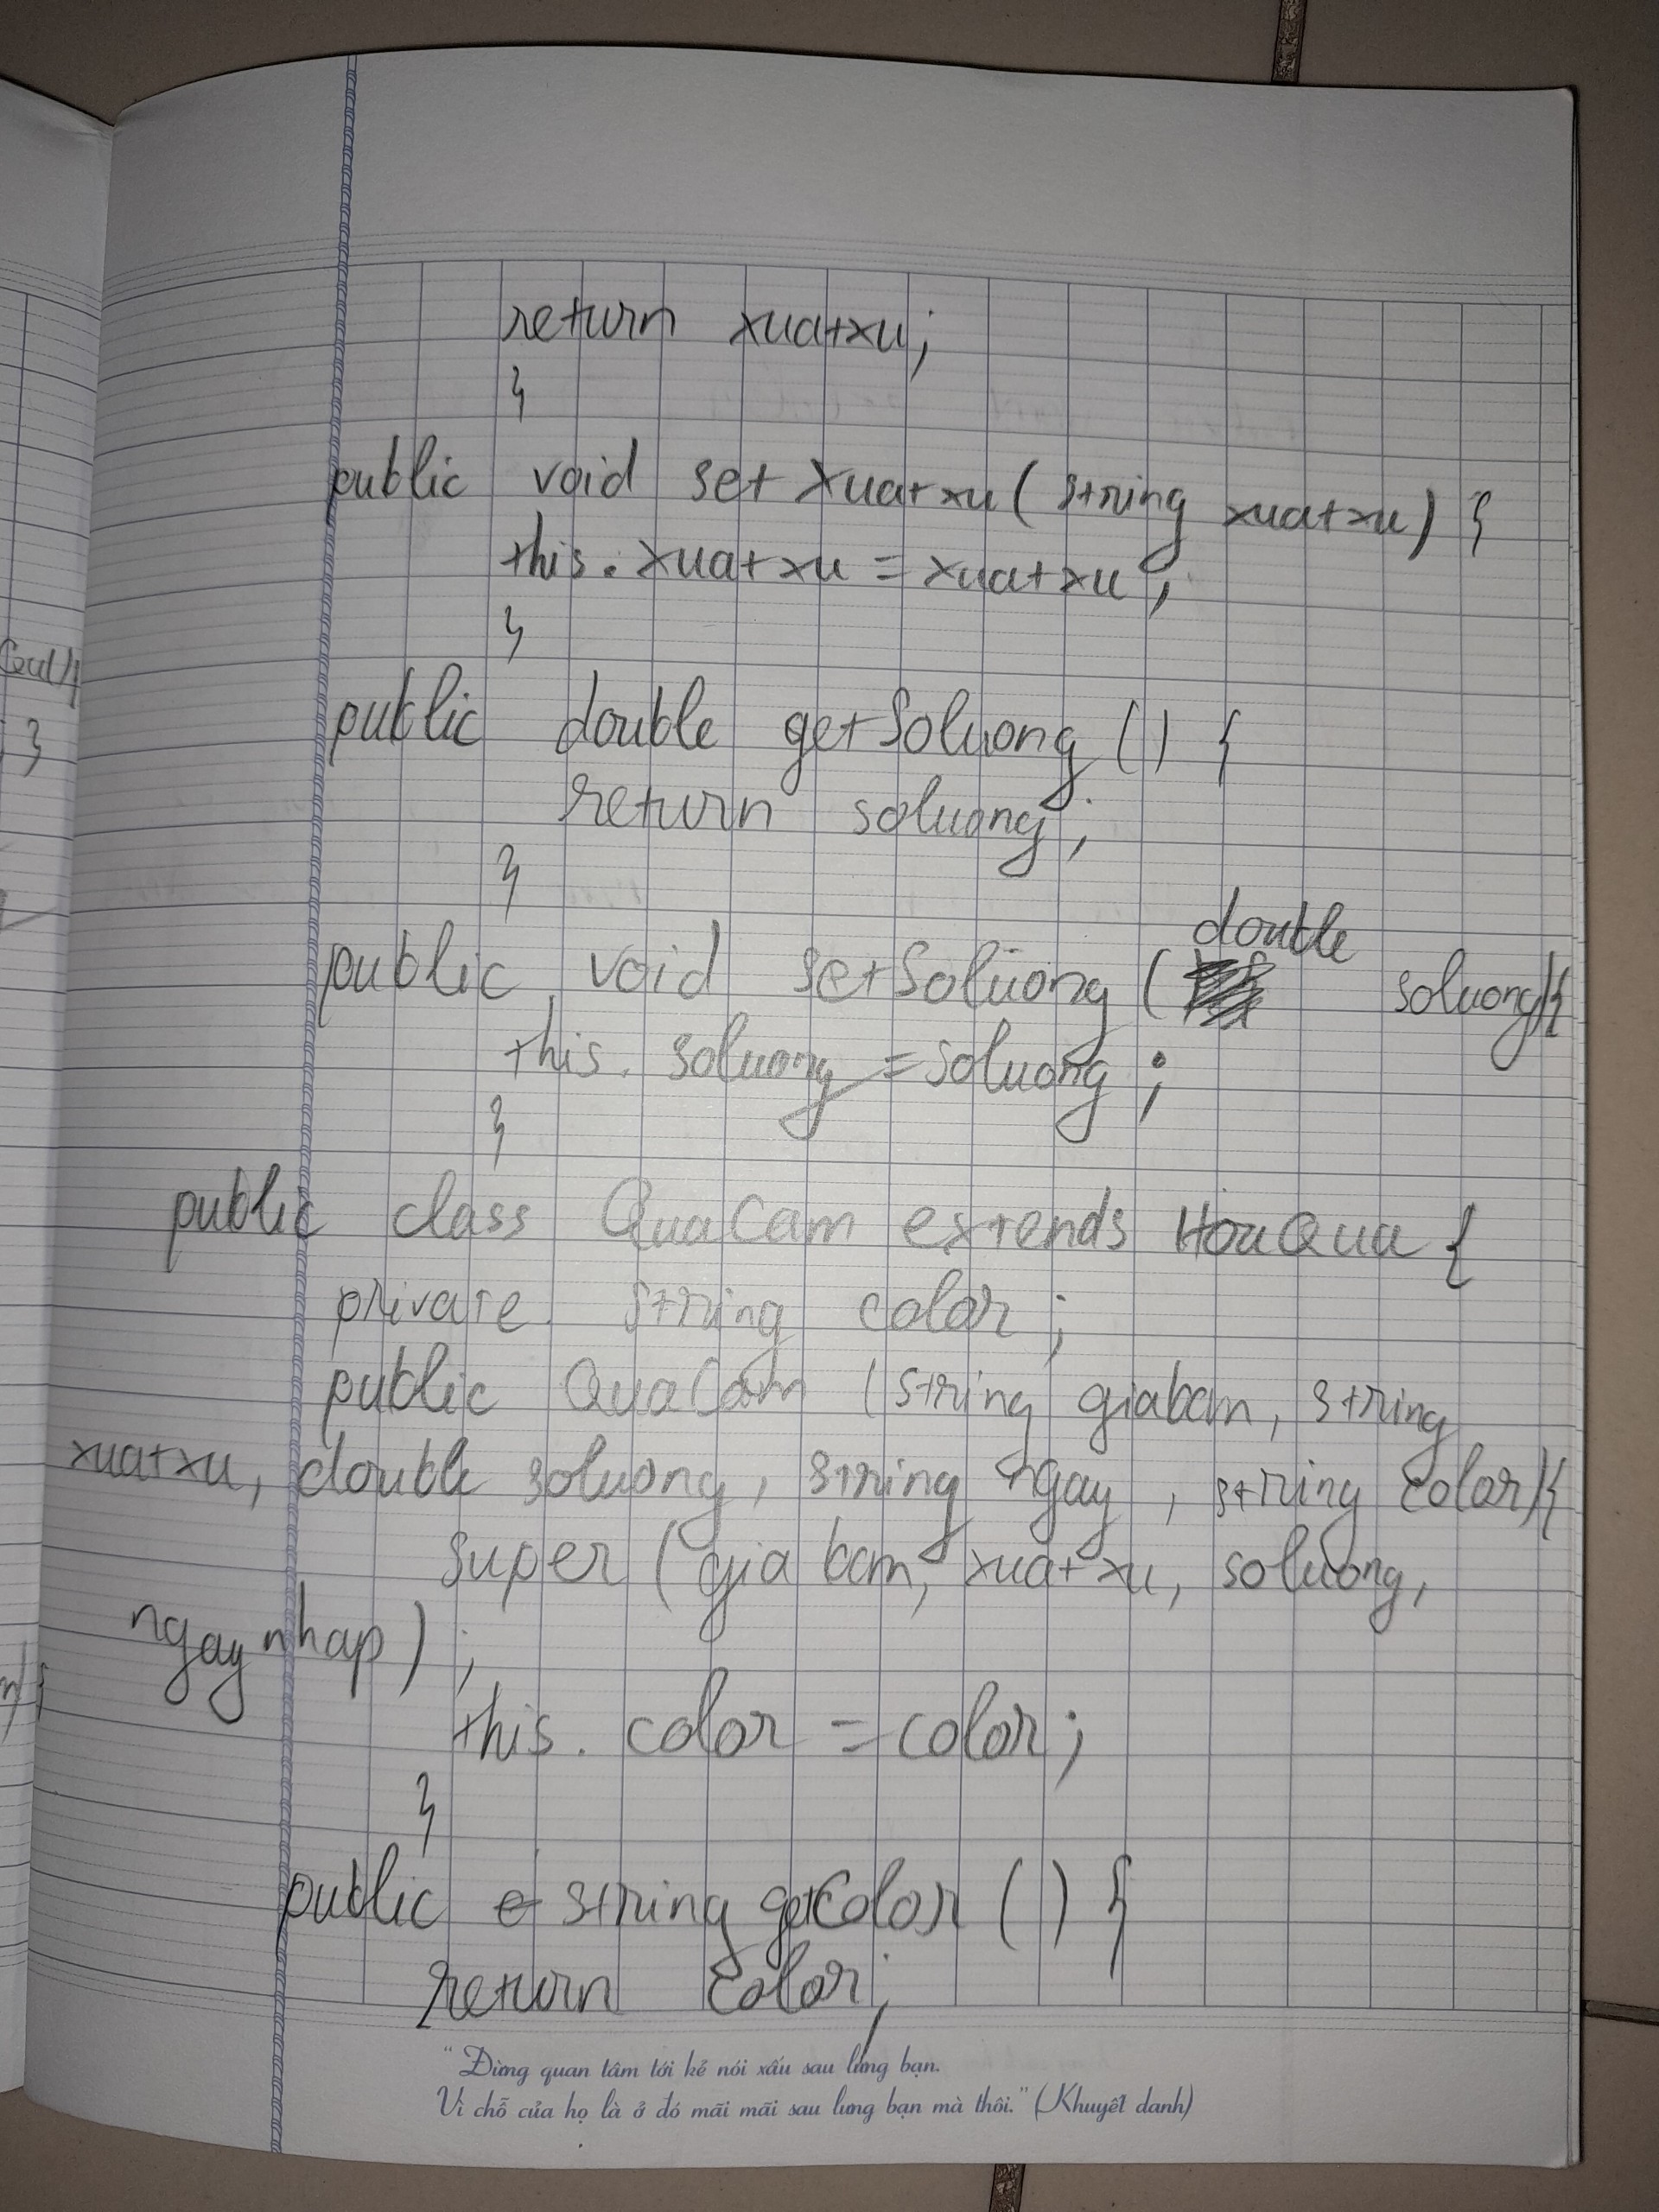 return xuatxu;
}
public void set Xuatxu( string xuatxu) {
this. xuatxu = xuatxu;
}
public double getSoluong () {
return soluong;
}
public void setSoluong ( double soluong){
this. soluong = soluong;
}
public class QuaCam extends HoaQua {
private string color;
public QuaCam (string giaban, string
xuatxu, double soluong, string ngay, string color){
super (gia ban, xuatxu, soluong,
ngay nhap);
this. color = color;
}
public string getColor () {
return color;
"Đừng quan tâm tới kẻ nói xấu sau lưng bạn.
Vì chỗ của họ là ở đó mãi mãi sau lưng bạn mà thôi." (Khuyết danh)